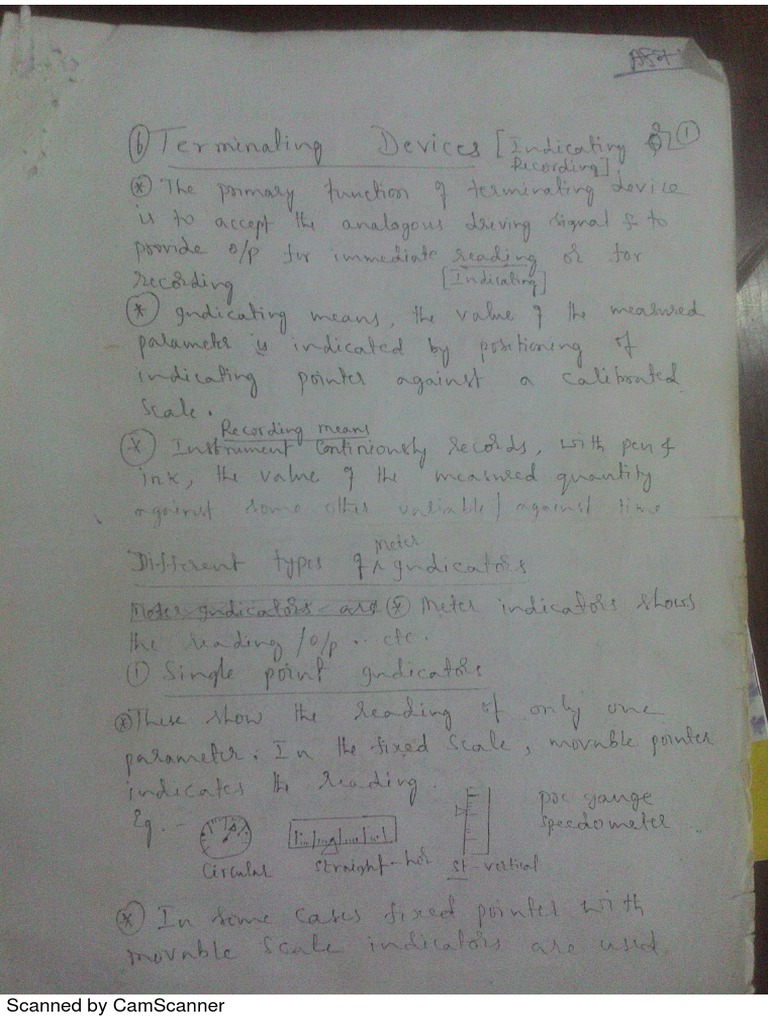 ⑥ Terminating Devices [Indicating & ①
Recording]
* The primary function of terminating device
is to accept the analogous driving signal & to
provide o/p for immediate reading or for
recording [Indicating]
* Indicating means, the value of the measured
parameter is indicated by positioning of
indicating pointer against a calibrated
scale.
Recording means
* Instrument continiously records, with pen &
ink, the value of the measured quantity
against some other variable / against time
Different types of Meter Indicators
Meter Indicators are * Meter indicators shows
the reading / o/p .. etc.
① Single point Indicators
* These show the reading of only one
parameter. In the fixed scale, movable pointer
indicates the reading.
Eg. - gauge
speedometer
Circular straight-hor st-vertical
* In some cases fixed pointer with
movable scale indicators are used.
Scanned by CamScanner